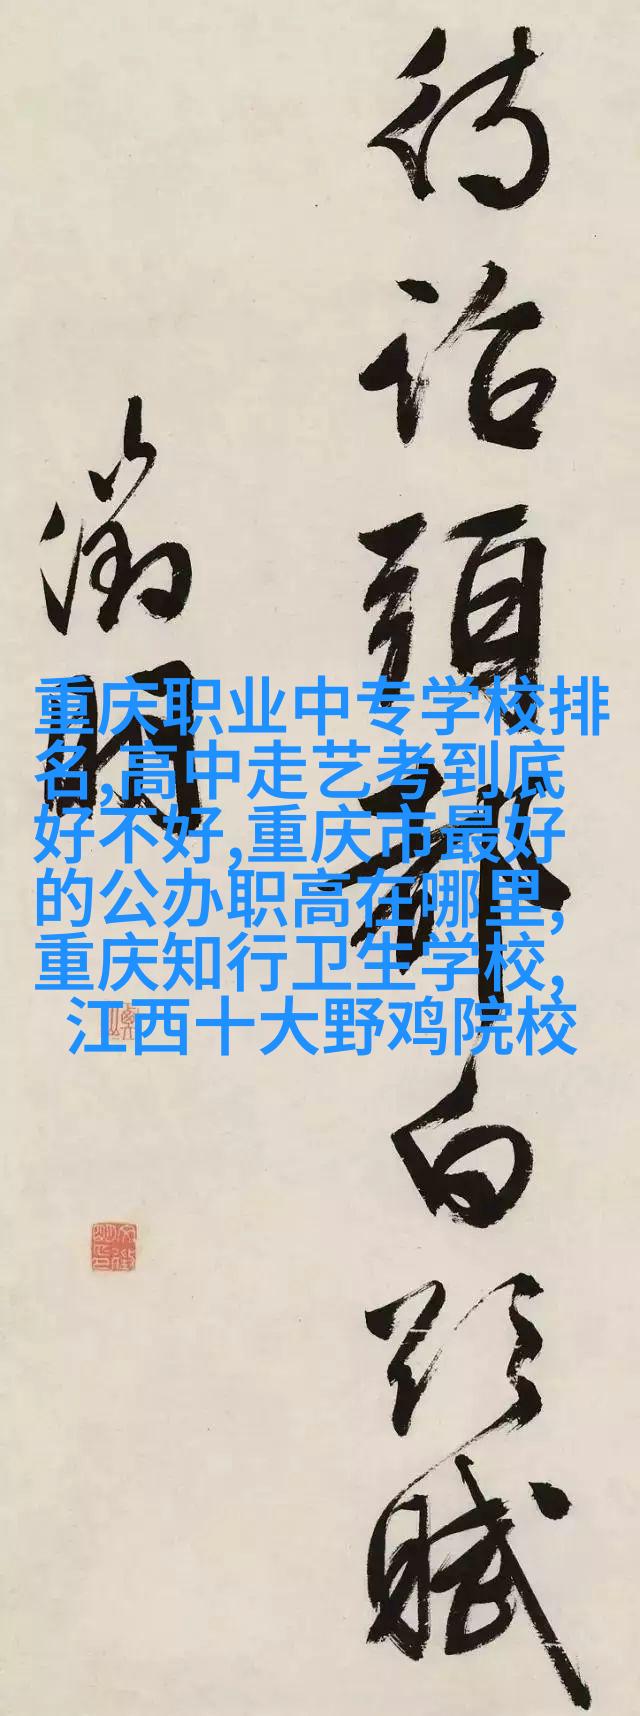 待詔頭都白賦
徵明
重庆职业中专学校排
名,高中走艺考到底
好不好,重庆市最好
的公办职高在哪里,
重庆知行卫生学校,
江西十大野鸡院校